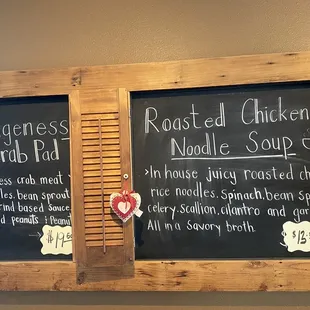 geness
rab Pad T
ess crab meat
dles, bean sprout
rind based Sauce
d peanuts
$19.
Roasted Chicken
Noodle Soup
>In house juicy roasted ch
rice noodles, Spinach, bean sp
celery, scallion, cilantro and gar
All in a savory broth.
$13.